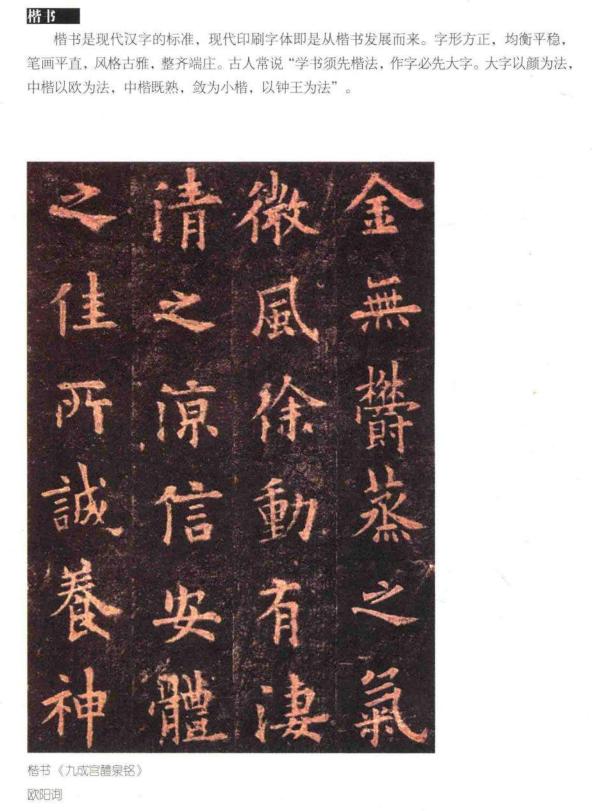 楷书
楷书是现代汉字的标准，现代印刷字体即是从楷书发展而来。字形方正，均衡平稳，
笔画平直，风格古雅，整齐端庄。古人常说“学书须先楷法，作字必先大字。大字以颜为法，
中楷以欧为法，中楷既熟，敛为小楷，以钟王为法”。
金無欝蒸之氣
微風徐動有淒
清之涼信安體
之佳所誠養神
楷书《九成宫醴泉铭》
欧阳询